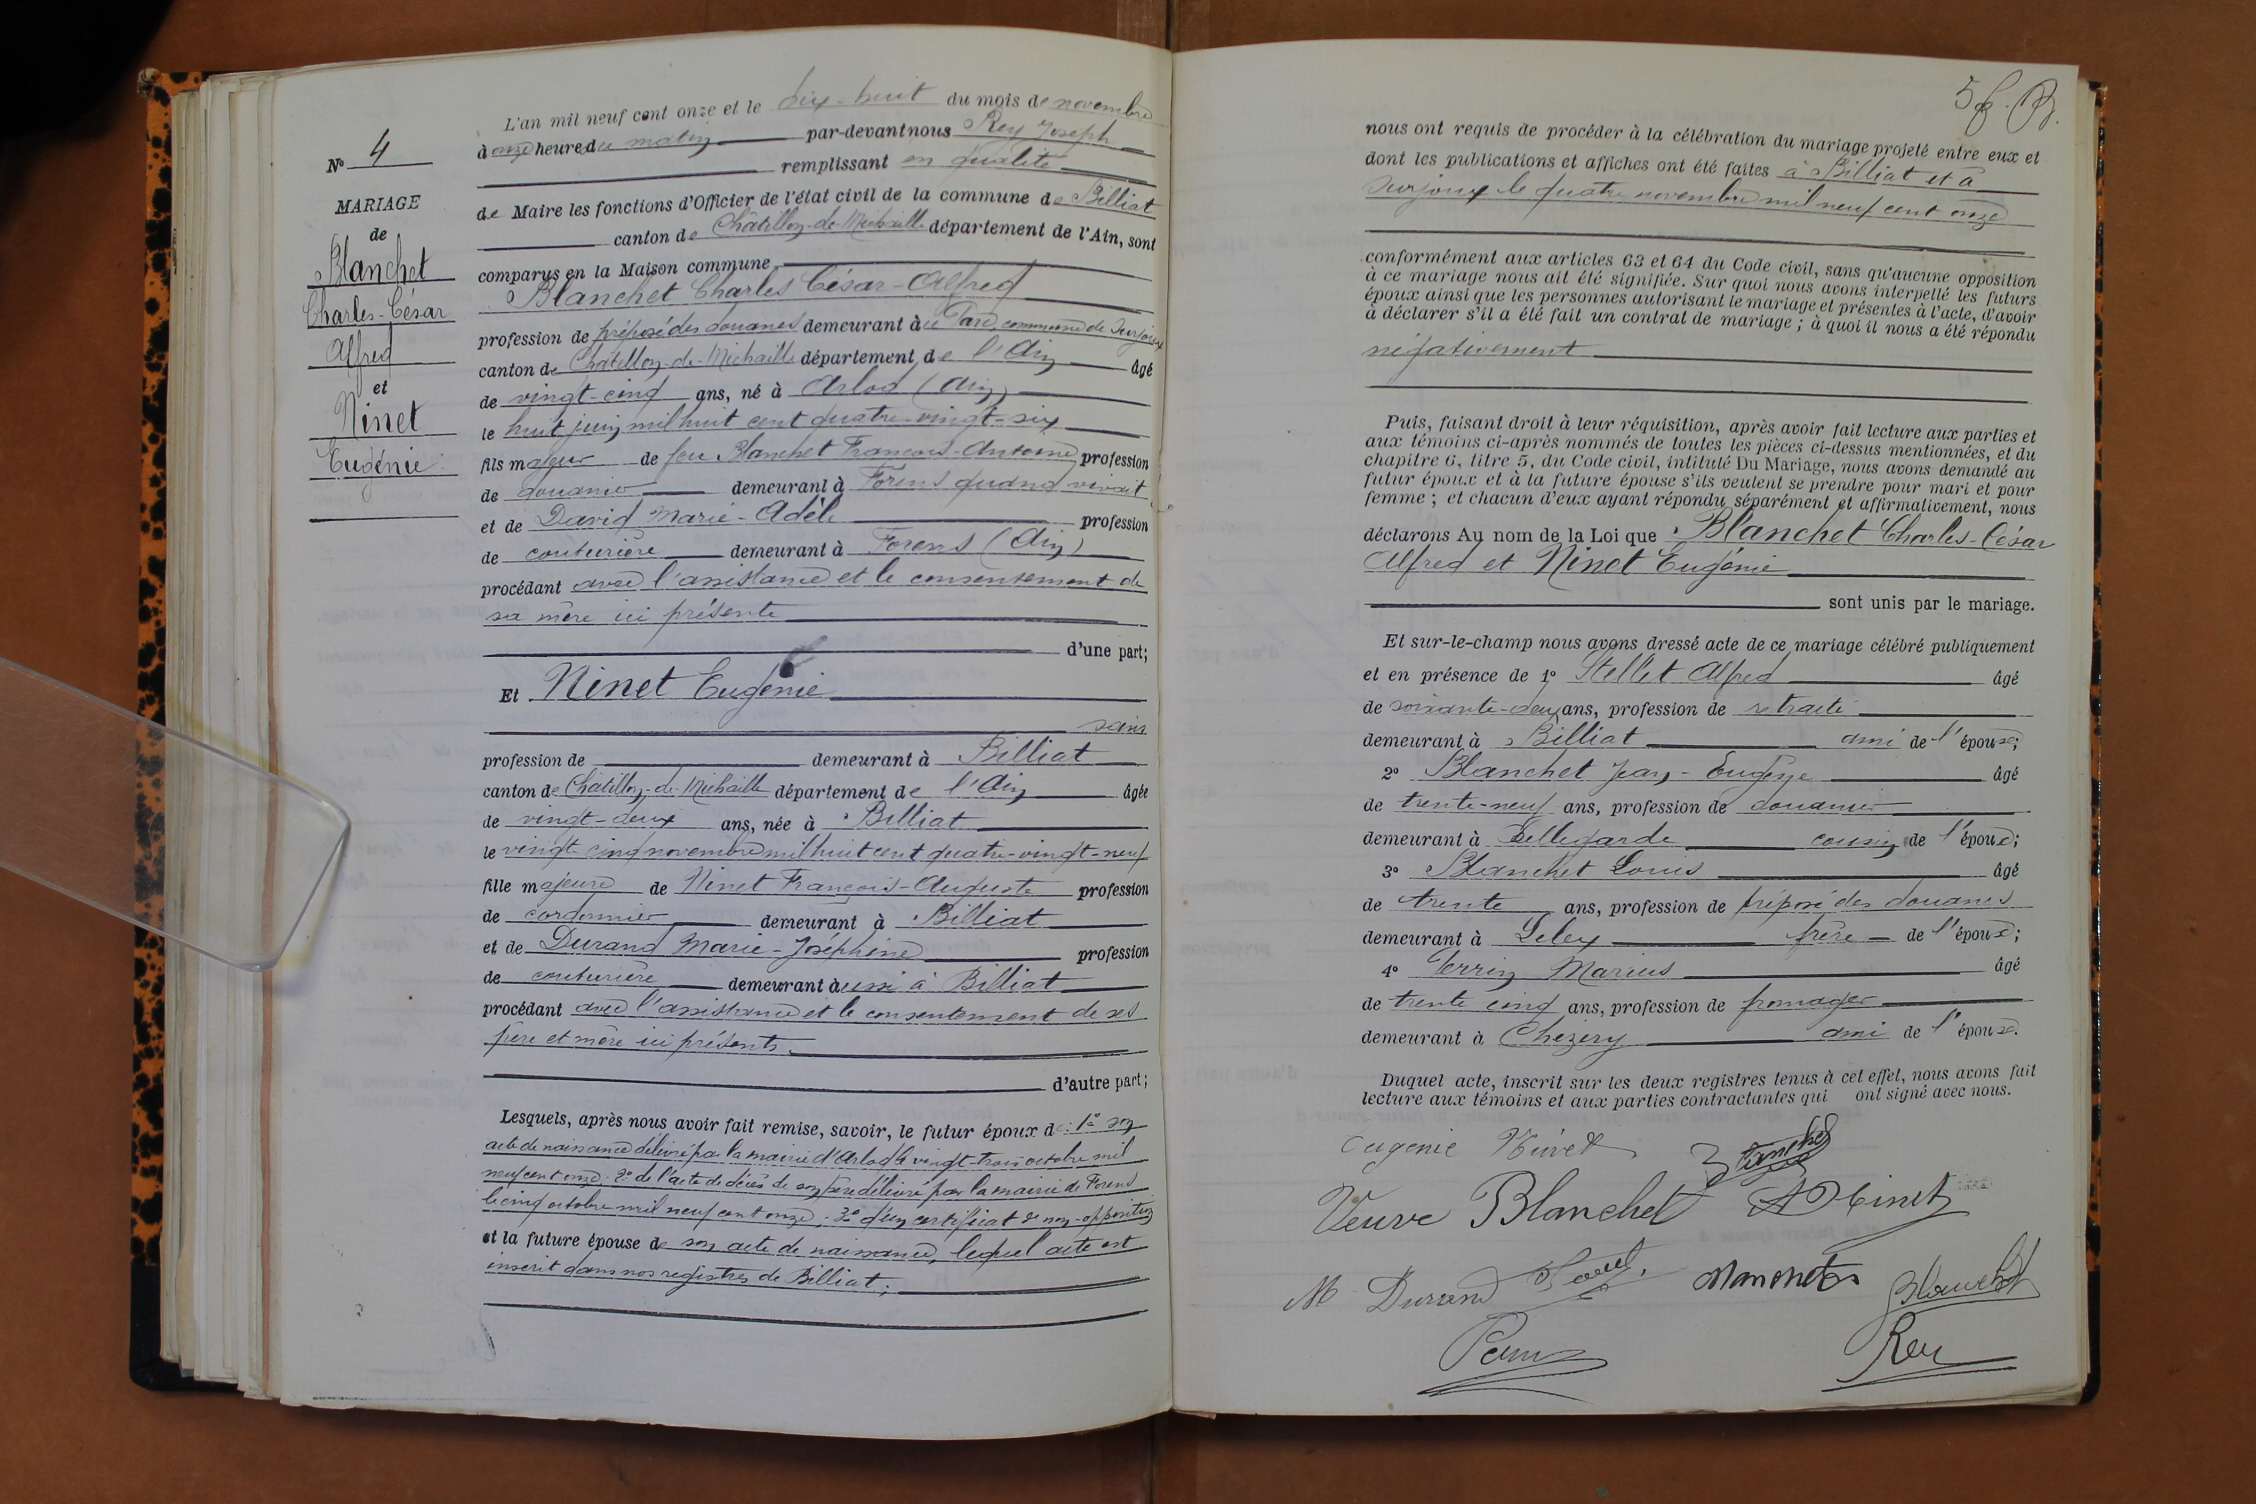 N° 4
MARIAGE
de
Blanchet
Charles-César
Alfred
et
Ninet
Eugénie
L'an mil neuf cent onze et le dix-huit du mois de novembre
à onze heure du matin par-devant nous Rey Joseph
remplissant en qualité
de Maire les fonctions d'Officier de l'état civil de la commune de Billiat
canton de Châtillon-de-Michaille département de l'Ain, sont
comparus en la Maison commune
Blanchet Charles César-Alfred
profession de préposé des douanes demeurant à commune de Surjoux
canton de Châtillon-de-Michaille département de l'Ain âgé
de vingt-cinq ans, né à Arlod (Ain)
le huit juin mil huit cent quatre-vingt-six
fils majeur de feu Blanchet François-Antoine profession
de douanier demeurant à Forens quand vivait
et de David Marie-Adèle profession
de couturière demeurant à Forens (Ain)
procédant avec l'assistance et le consentement de
sa mère ici présente
d'une part;
Et Ninet Eugénie
sans
profession de demeurant à Billiat
canton de Châtillon-de-Michaille département de l'Ain âgée
de vingt-deux ans, née à Billiat
le vingt-cinq novembre mil huit cent quatre-vingt-neuf
fille majeure de Ninet François-Auguste profession
de cordonnier demeurant à Billiat
et de Durand Marie-Joséphine profession
de couturière demeurant aussi à Billiat
procédant avec l'assistance et le consentement de ses
père et mère ici présents
d'autre part;
Lesquels, après nous avoir fait remise, savoir, le futur époux de: 1° son
acte de naissance délivré par la mairie d'Arlod le vingt-trois octobre mil
neuf cent onze; 2° de l'acte de décès de son père délivré par la mairie de Forens
le cinq octobre mil neuf cent onze; 3° d'un certificat de non-opposition
et la future épouse de son acte de naissance, lequel acte est
inscrit dans nos registres de Billiat;
nous ont requis de procéder à la célébration du mariage projeté entre eux et
dont les publications et affiches ont été faites à Billiat et à
Surjoux le quatre novembre mil neuf cent onze
conformément aux articles 63 et 64 du Code civil, sans qu'aucune opposition
à ce mariage nous ait été signifiée. Sur quoi nous avons interpellé les futurs
époux ainsi que les personnes autorisant le mariage et présentes à l'acte, d'avoir
à déclarer s'il a été fait un contrat de mariage; à quoi il nous a été répondu
négativement
Puis, faisant droit à leur réquisition, après avoir fait lecture aux parties et
aux témoins ci-après nommés de toutes les pièces ci-dessus mentionnées, et du
chapitre 6, titre 5, du Code civil, intitulé Du Mariage, nous avons demandé au
futur époux et à la future épouse s'ils veulent se prendre pour mari et pour
femme; et chacun d'eux ayant répondu séparément et affirmativement, nous
déclarons Au nom de la Loi que Blanchet Charles-César
Alfred et Ninet Eugénie
sont unis par le mariage.
Et sur-le-champ nous avons dressé acte de ce mariage célébré publiquement
et en présence de 1° Alfred âgé
de soixante-deux ans, profession de retraité
demeurant à Billiat ami de l'épouse;
2° Blanchet Jean-Eugène âgé
de trente-neuf ans, profession de douanier
demeurant à Bellegarde cousin de l'époux;
3° Blanchet Louis âgé
de trente ans, profession de préposé des douanes
demeurant à Lelex frère de l'époux;
4° Perrin Marius âgé
de trente cinq ans, profession de fromager
demeurant à Chézery ami de l'époux.
Duquel acte, inscrit sur les deux registres tenus à cet effet, nous avons fait
lecture aux témoins et aux parties contractantes qui ont signé avec nous.
Eugénie Ninet Blanchet
Veuve Blanchet A Ninet
M Durand Blanchet
Perrin Rey